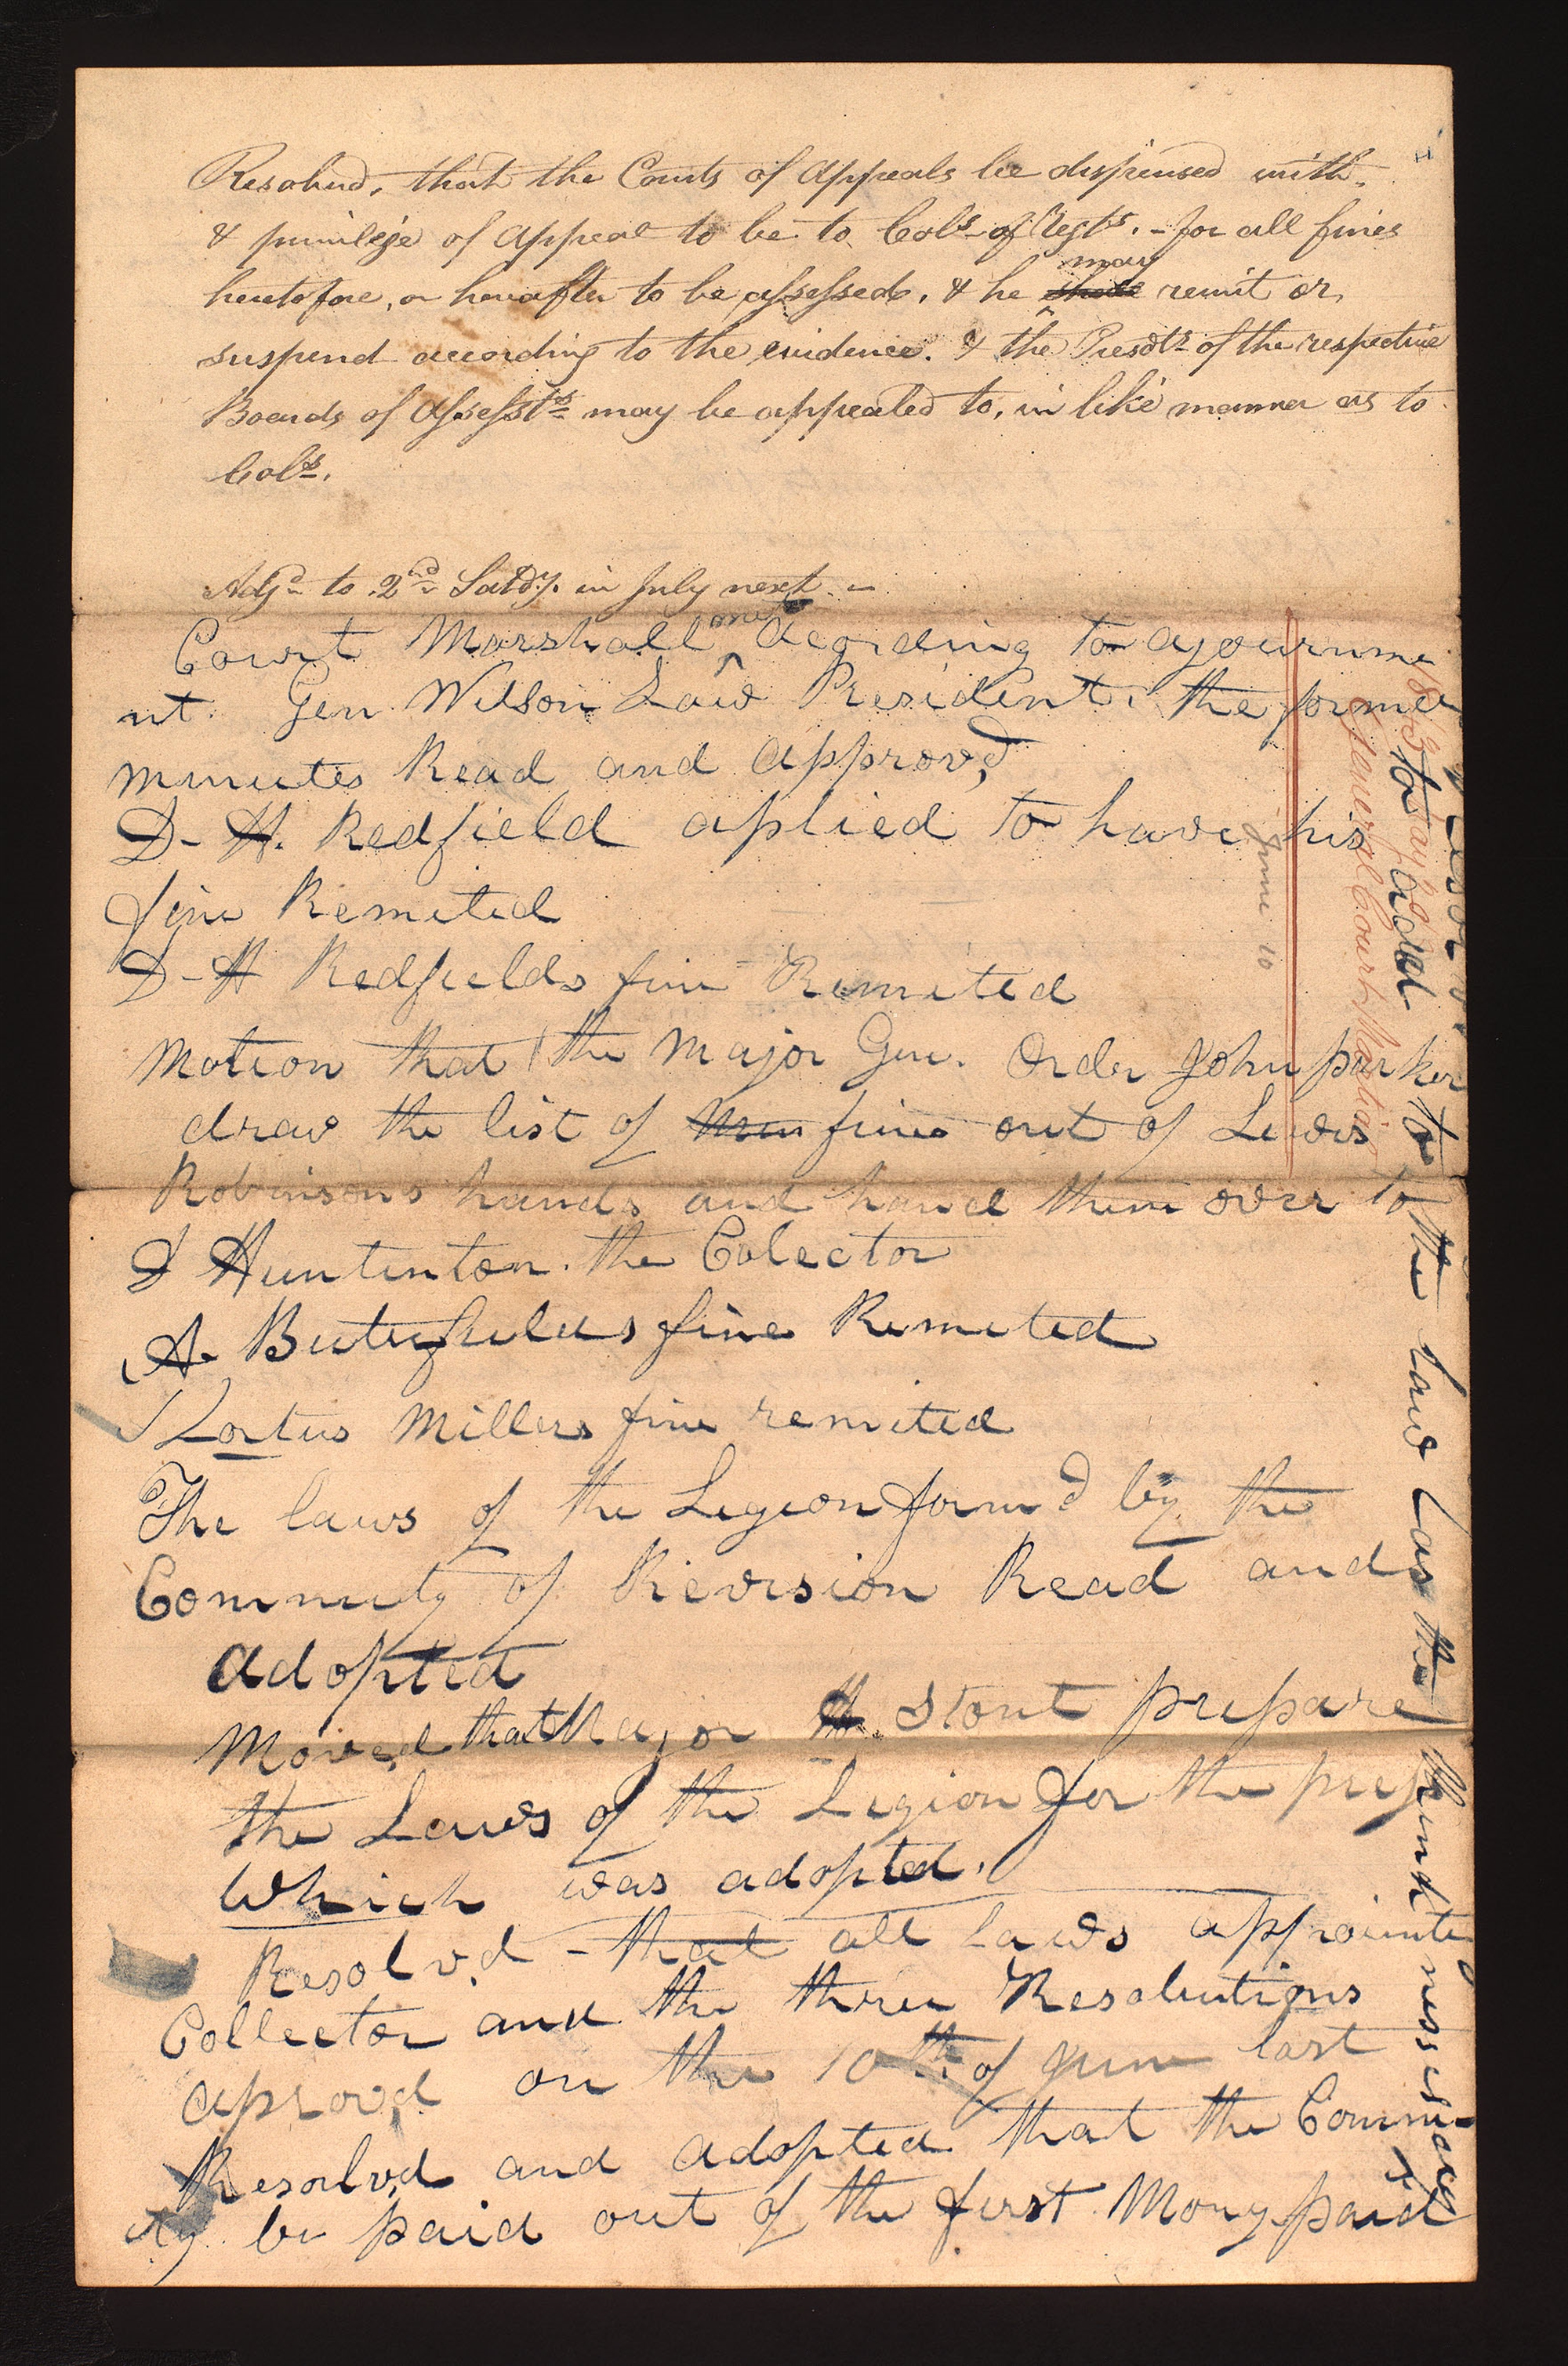 Resolved, that the Courts of Appeals be dispensed with.
& privilege of Appeal to be to Cols. of Regts. - for all fines
heretofore, or hereafter to be assessed, & he may shall remit or
suspend according to the evidence. & the Presdts. of the respective
Boards of Assessts. may be appealed to, in like manner as to
Cols.
Adjd. to 2nd Satdy. in July next. -
Court Marshall met Acording to ajournme
nt. Gen Wilson Law President. the former
minutes Read and approv,d
D- H. Redfield aplied to have his
fine Remited
D-H Redfields fine Remited
Motion that the Major Gen. Order John parker
draw the list of men fines out of Lewis
Robinsons hands and hand them over to
D Huntinton. the Colector
A. Buterfields fine Remited
Miller,s fine remited
The laws of the Legion form,d by the
Commity of Revision Read and
adopted
Moved that Major H. Stout prepare
the Laws of the Legion for the press
Which was adopted.
Resolv,d - that all laws appointe
Collector and the three Resolutions
aprov,d on the 10th. of June last
Resolv,d and adopted that the Comm-
ity be paid out of the first Mony paid
to add to the law as the think nessessary
1843 May &
General Court Martial
June 10